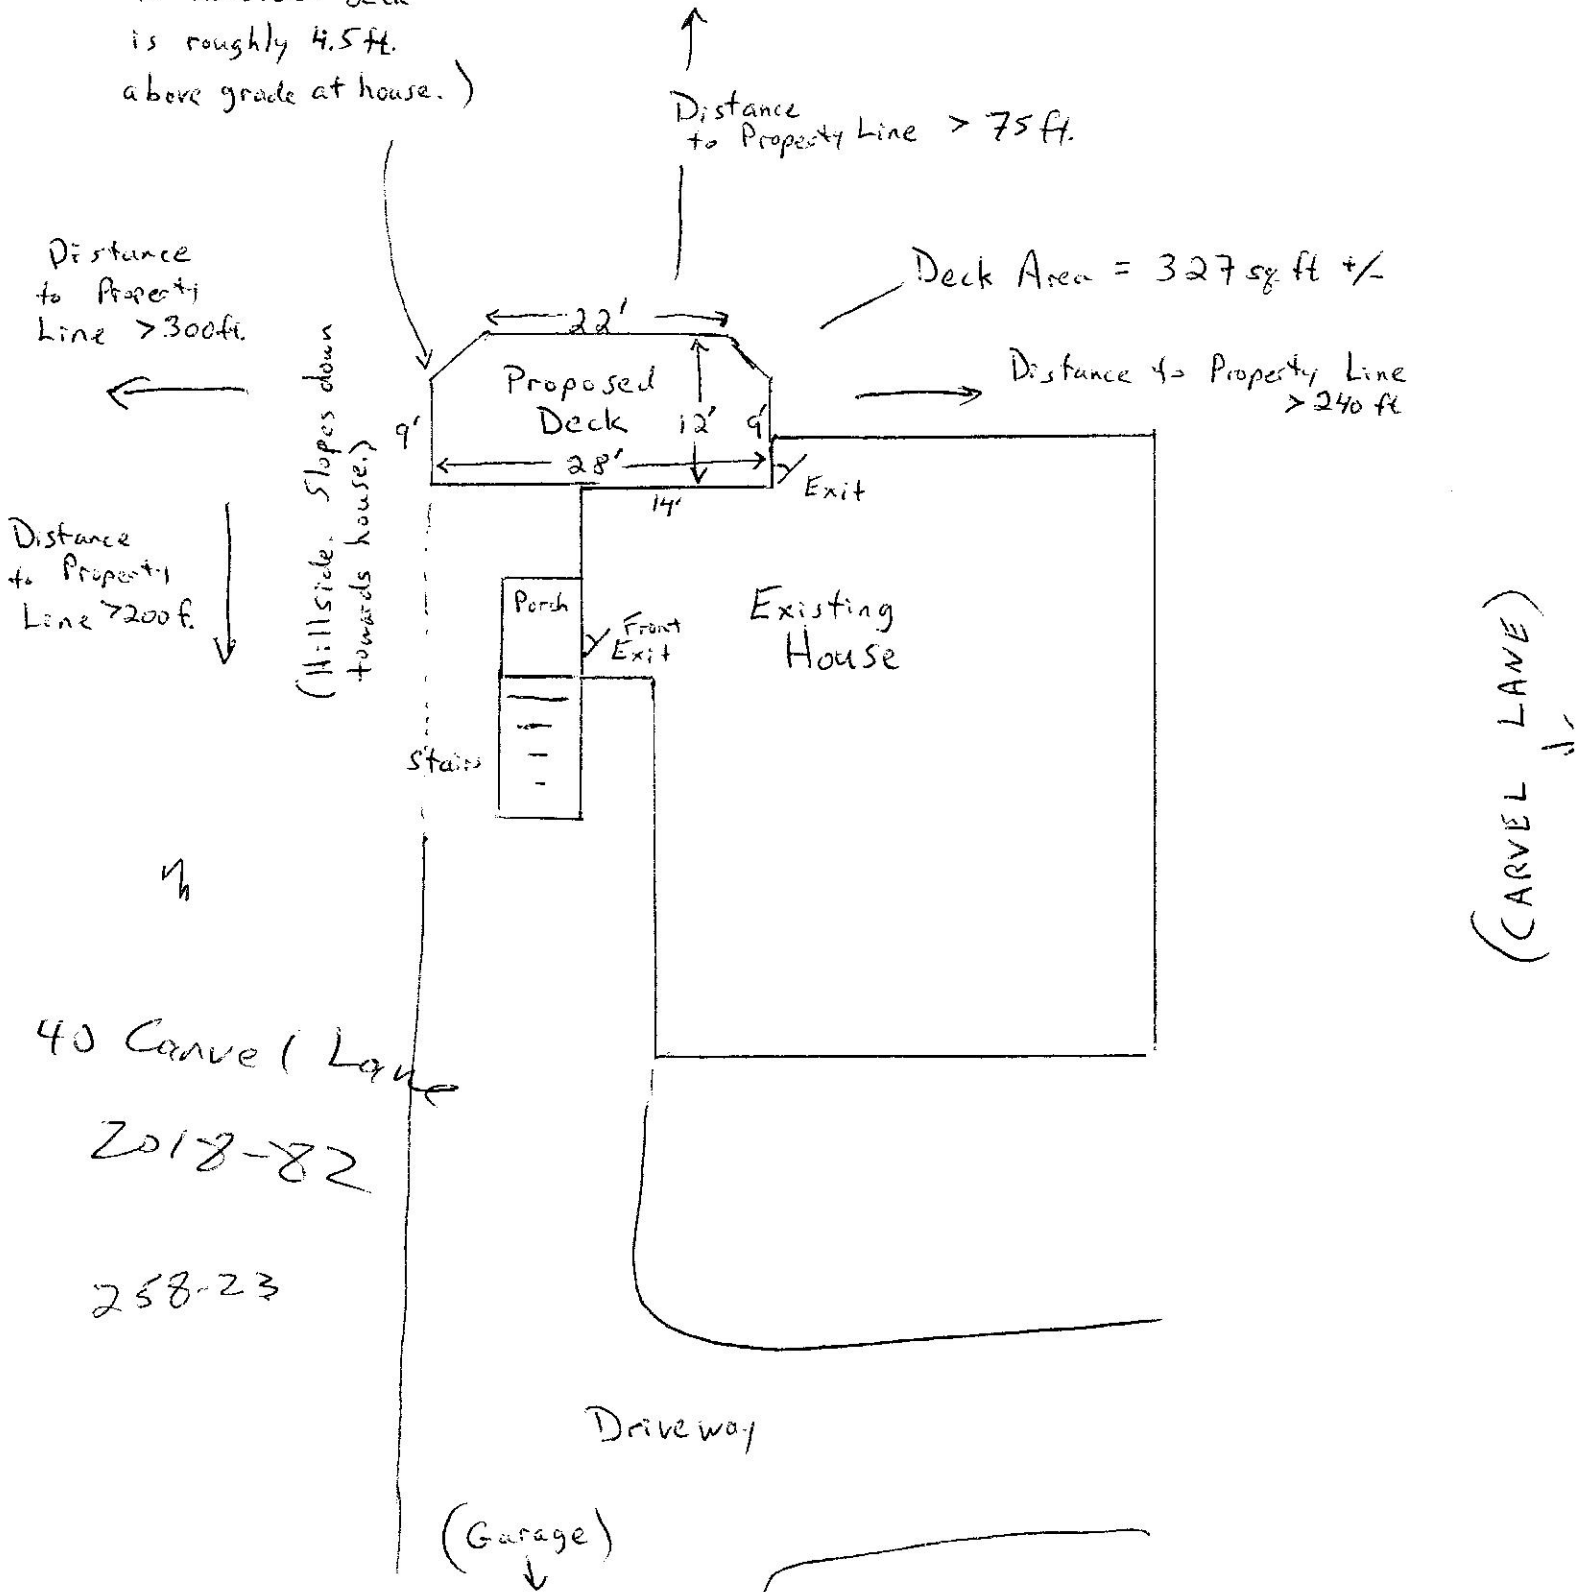 is roughly 4.5 ft.
above grade at house.)
Distance
to Property Line > 75 ft.
Distance
to Property
Line > 300 ft.
Deck Area = 327 sq. ft +/-
22'
Proposed
Deck
12'
9'
9'
28'
14'
Exit
Distance to Property Line
> 240 ft
(Hillside. Slopes down
towards house.)
Distance
to Property
Line > 200 f.
Porch
Front
Exit
Existing
House
Stairs
(CARVEL LANE)
40 Carvel Lane
2018-82
258-23
Driveway
(Garage)